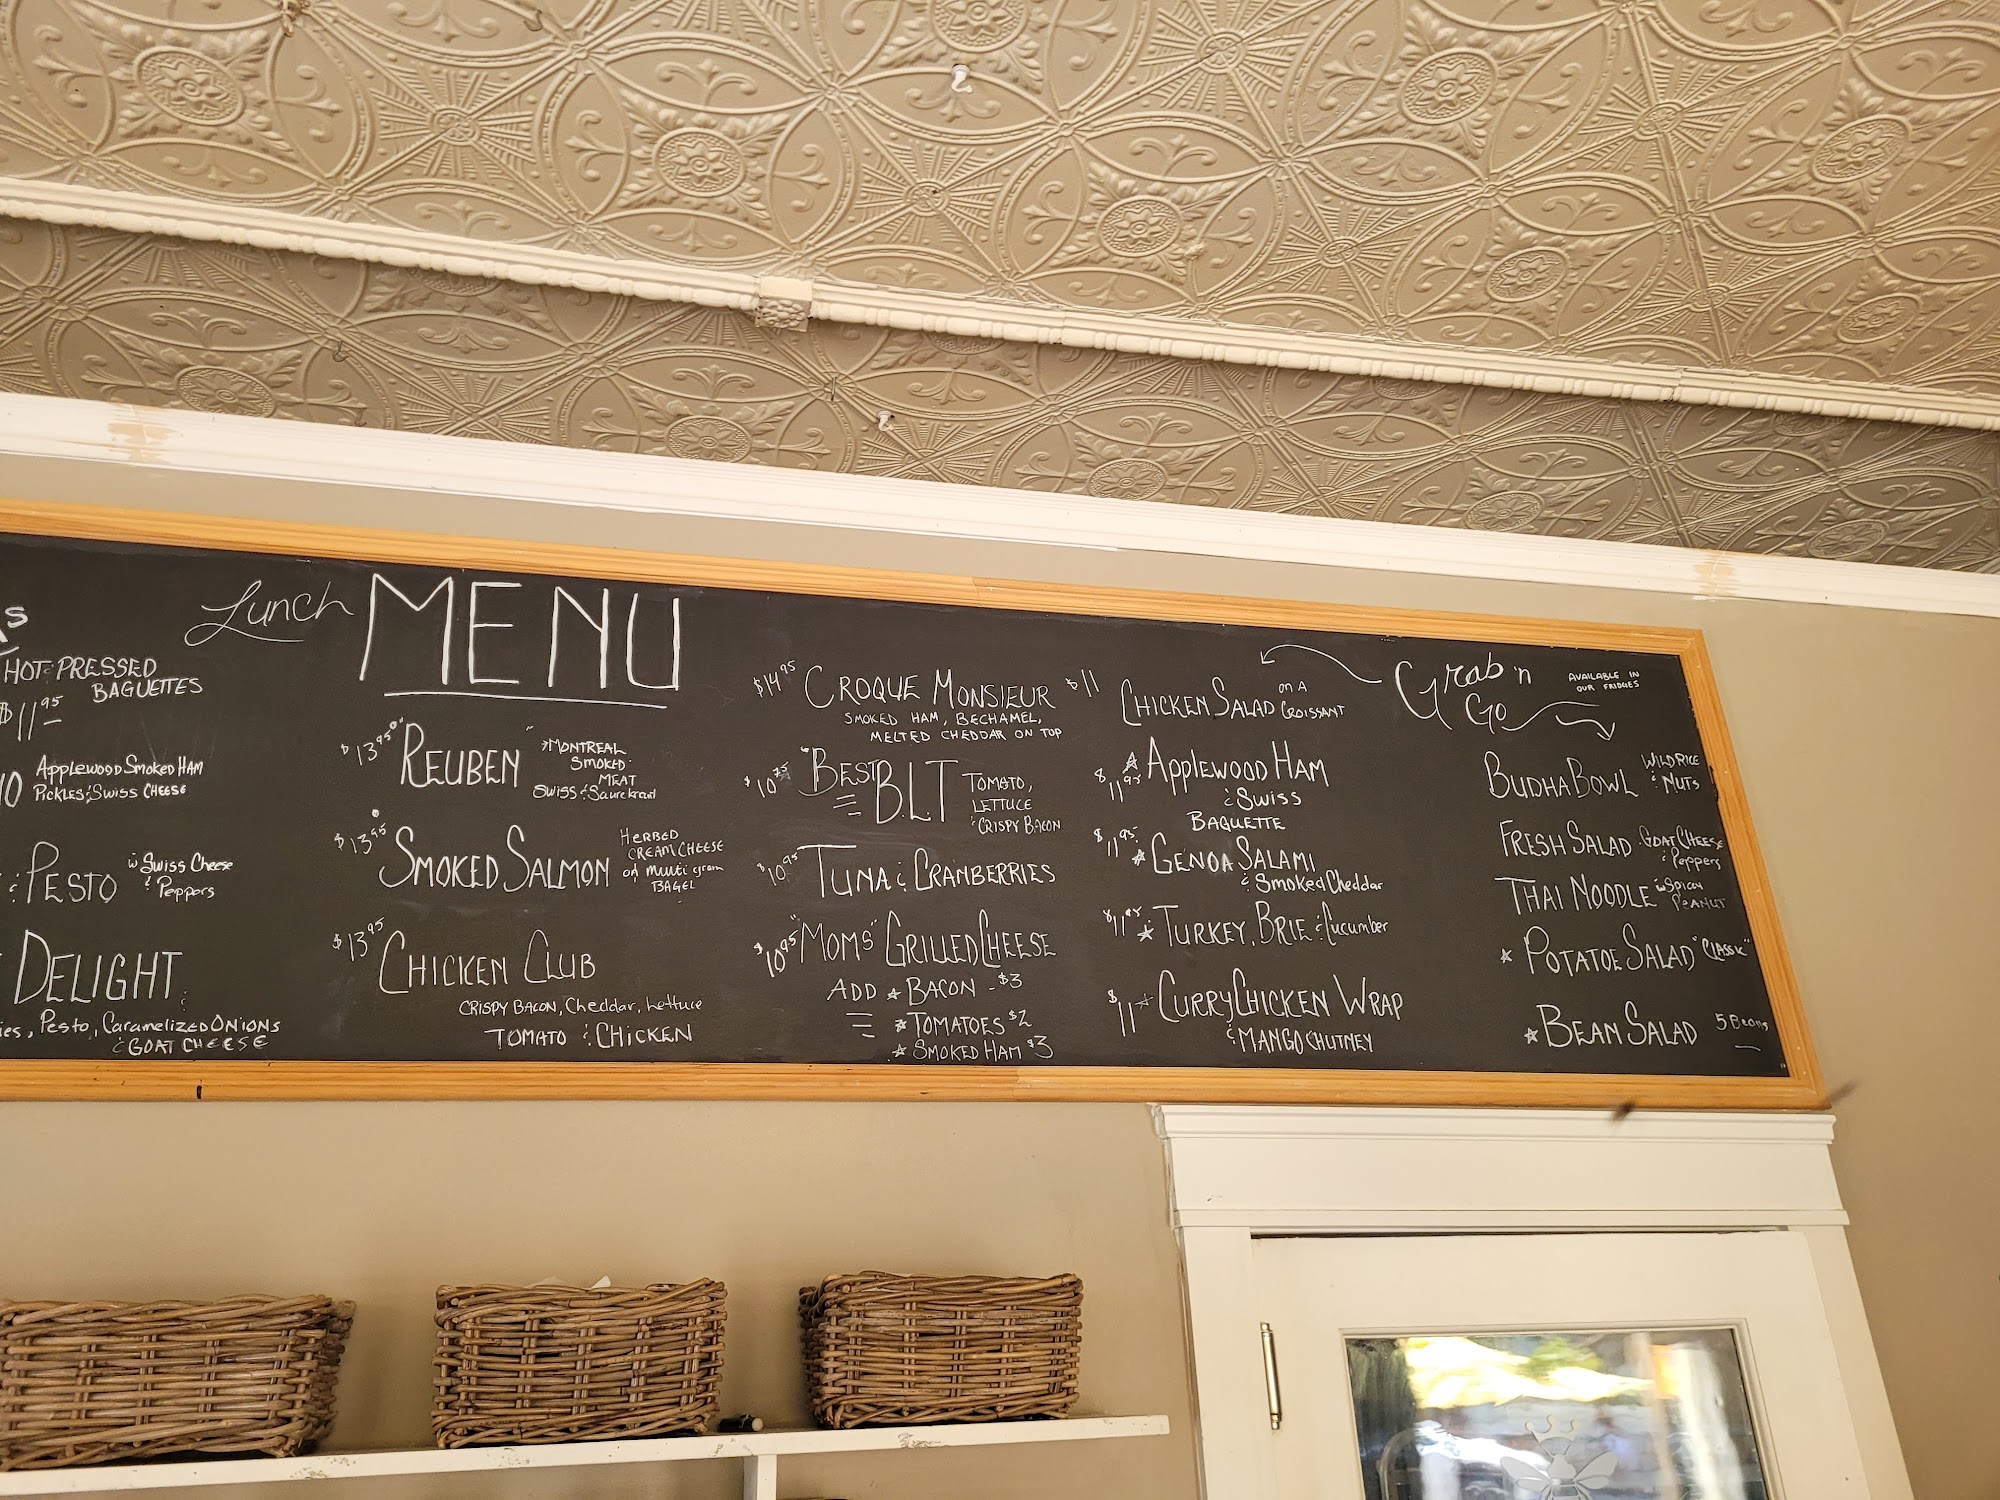 HOT PRESSED
BAGUETTES
$11.95
Applewood Smoked Ham
Pickles & Swiss Cheese
& PESTO w Swiss Cheese
& Peppers
DELIGHT
Pesto, Caramelized Onions
& GOAT CHEESE
Lunch MENU
$13.95 "REUBEN"
MONTREAL
SMOKED
MEAT
Swiss & Saurekraut
$13.95 SMOKED SALMON
HERBED
CREAM CHEESE
on multi grain
BAGEL
$13.95 CHICKEN CLUB
CRISPY BACON, Cheddar, Lettuce
TOMATO & CHICKEN
$14.95 CROQUE MONSIEUR
SMOKED HAM, BECHAMEL,
MELTED CHEDDAR ON TOP
"BEST B.L.T
TOMATO,
LETTUCE
& CRISPY BACON
$10.95 TUNA & CRANBERRIES
$10.95 "MOMS" GRILLED CHEESE
ADD ☆ BACON - $3
☆ TOMATOES $2
☆ SMOKED HAM $3
$11 CHICKEN SALAD ON A
CROISSANT
$11.95 ☆ Applewood HAM
& Swiss
BAGUETTE
$11.95 ☆ GENOA SALAMI
& Smoked Cheddar
$11.95 ☆ TURKEY, BRIE & Cucumber
$11 ☆ CURRY CHICKEN WRAP
& MANGO CHUTNEY
Grab 'n
Go
AVAILABLE IN
OUR FRIDGES
BUDHA BOWL WILD RICE
& NUTS
FRESH SALAD GOAT CHEESE
& Peppers
THAI NOODLE w Spicy
PEANUT
☆ POTATOE SALAD "CLASSIC"
☆ BEAN SALAD 5 Beans